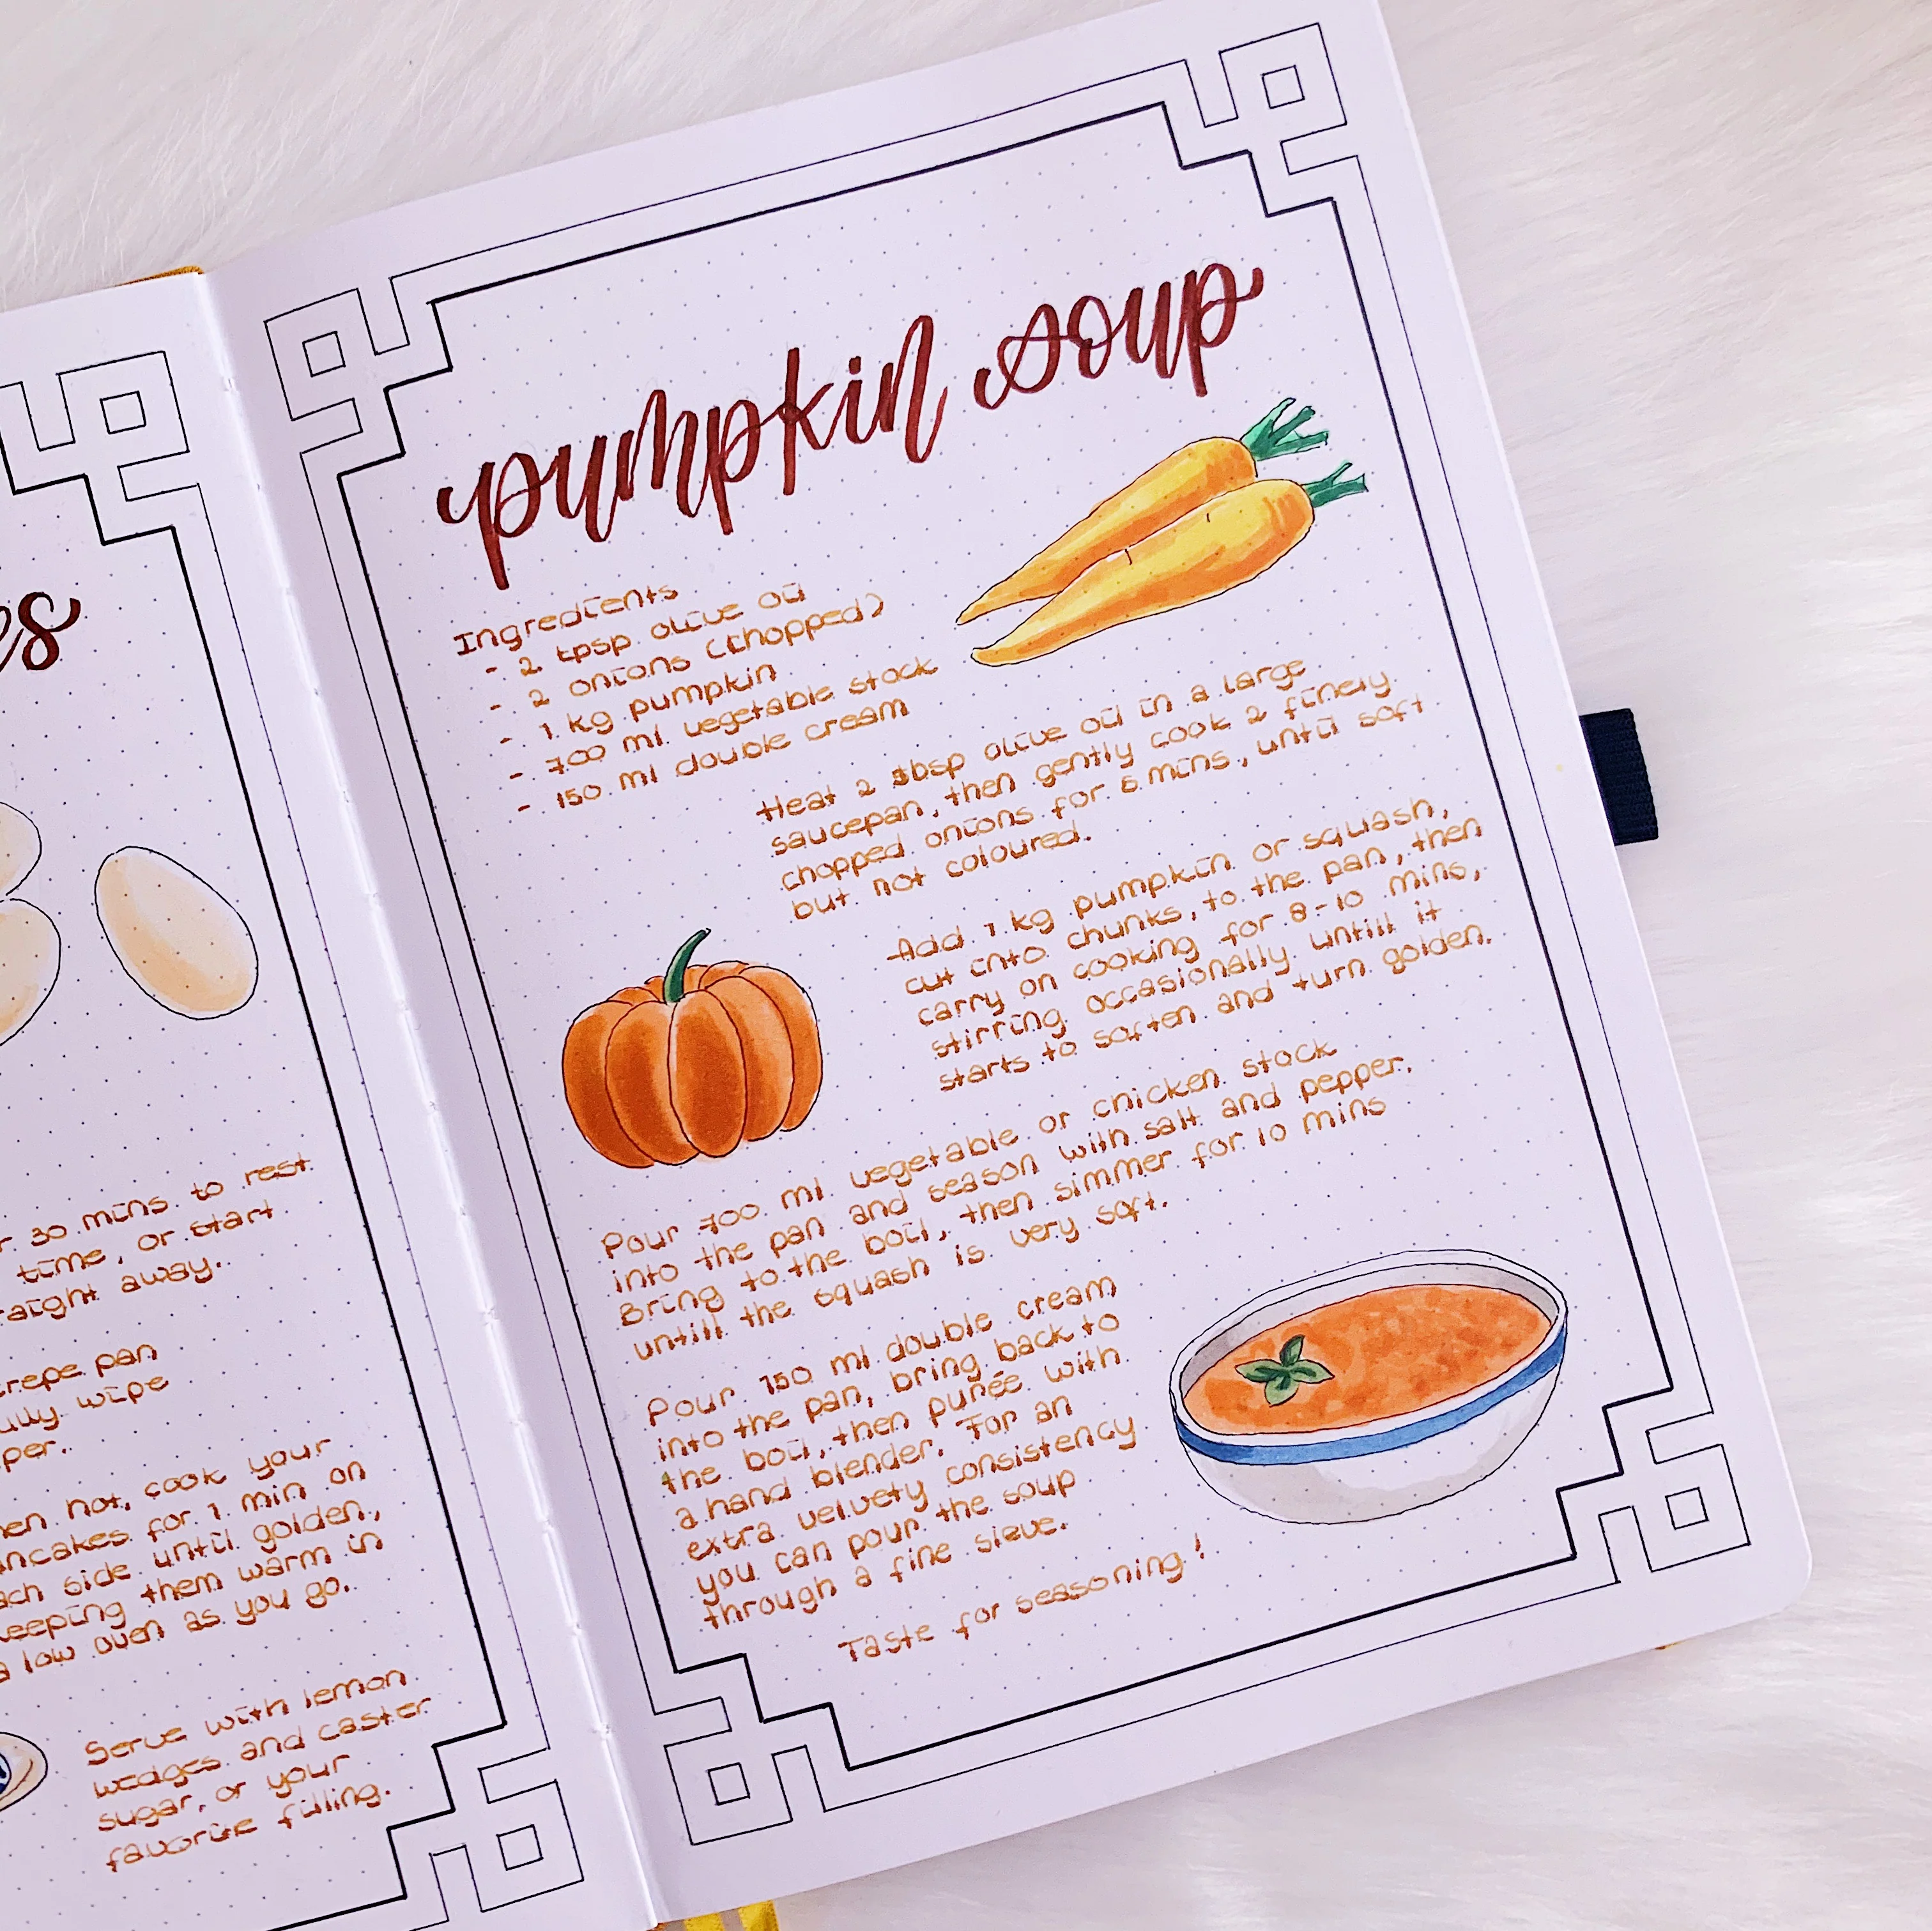 es
r 30 mins to rest
time, or start
raight away.
crepe pan
ully wipe
per.
hen hot, cook your
ancakes for 1 min on
ach side until golden,
keeping them warm in
a low oven as you go.
Serve with lemon
wedges and caster
sugar, or your
favorite filling.
pumpkin soup
Ingredients
- 2 tpsp olive oil
- 2 onions (chopped)
- 1 kg pumpkin
- 700 ml vegetable stock
- 150 ml double cream
Heat 2 tbsp olive oil in a large
saucepan, then gently cook 2 finely
chopped onions for 5 mins, until soft
but not coloured.
Add 1 kg pumpkin or squash,
cut into chunks, to the pan, then
carry on cooking for 8-10 mins,
stirring occasionally untill it
starts to soften and turn golden.
Pour 700 ml vegetable or chicken stock
into the pan and season with salt and pepper.
Bring to the boil, then simmer for 10 mins
untill the squash is very soft.
Pour 150 ml double cream
into the pan, bring back to
the boil, then purée with
a hand blender. For an
extra velvety consistency
you can pour the soup
through a fine sieve.
Taste for seasoning!